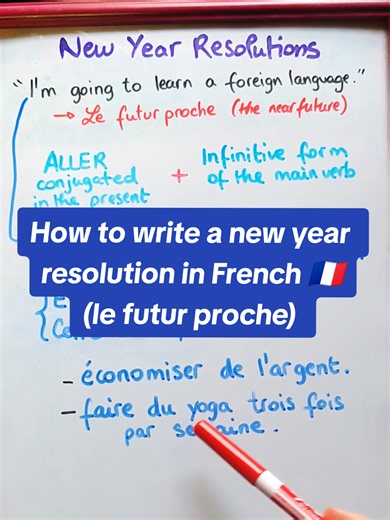 New Year Resolutions
"I'm going to learn a foreign language."
→ Le futur proche (the near future)
ALLER conjugated in the present + Infinitive form of the main verb
How to write a new year
resolution in French 🇫🇷
(le futur proche)
- économiser de l'argent.
- faire du yoga trois fois
par semaine.